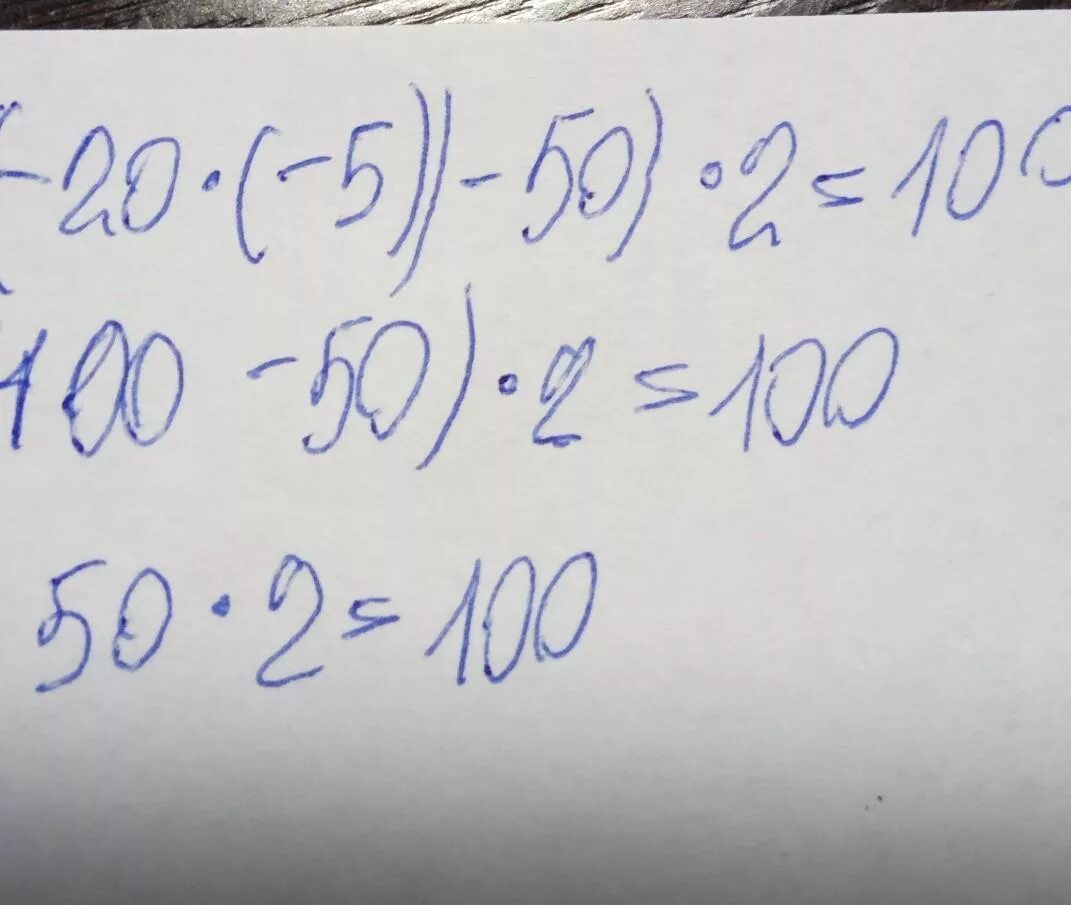 (-20·(-5))-50)·2=100
100-50)·2=100
50·2=100